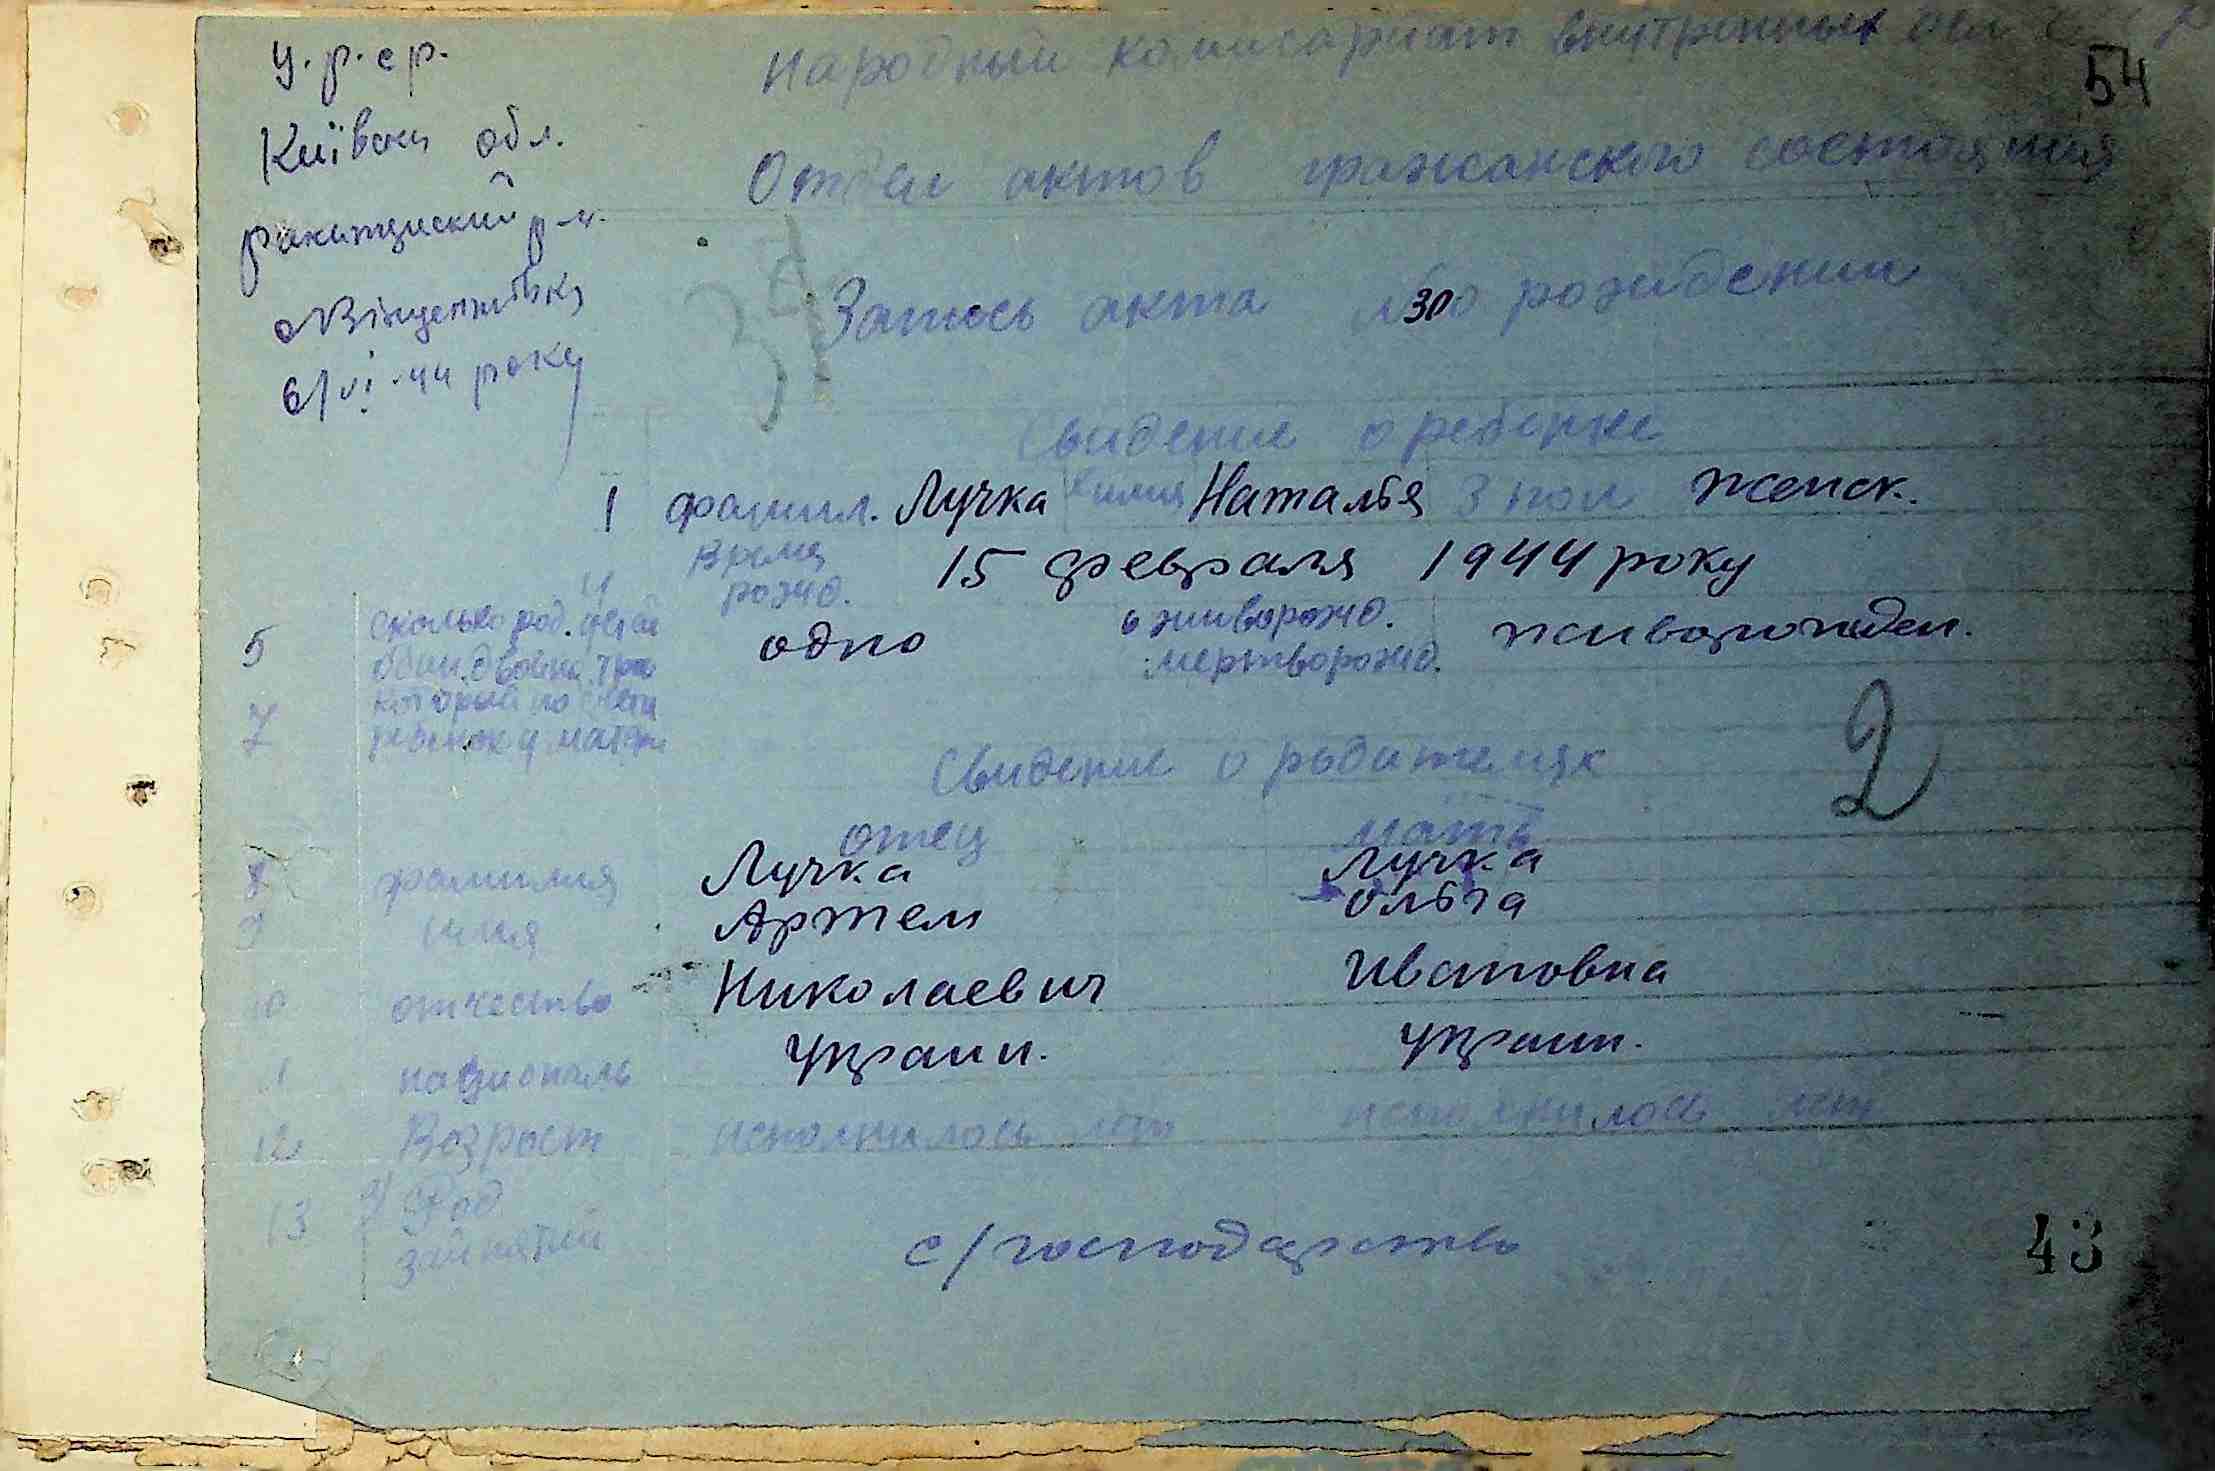 У.р.ср.
Київськ обл.
Ракитянський р-н.
с Вінцентівка
6/VI-44 року
Народный комисариат внутренных дел
54
Отдел актов гражданского состояния
Запись акта № 30 о рождении
Сведение о ребенке
1 фамил. Лучка 2 имя Наталья 3 пол женск.
4 время рожд. 15 февраля 1944 року
5 сколько род. детей один, двойня, тро одно 6 живорожд. мертворожд. живорожден.
7 который по счету ребенок у матери
2
Сведение о родителях
отец мать
8 фамилия Лучка Лучка
9 имя Артем Ольга
10 отчество Николаевич Ивановна
11 националь Украин. Украин.
12 Возраст исполнилось лет исполнилось лет
13 а) Род занятий с/господарство
43